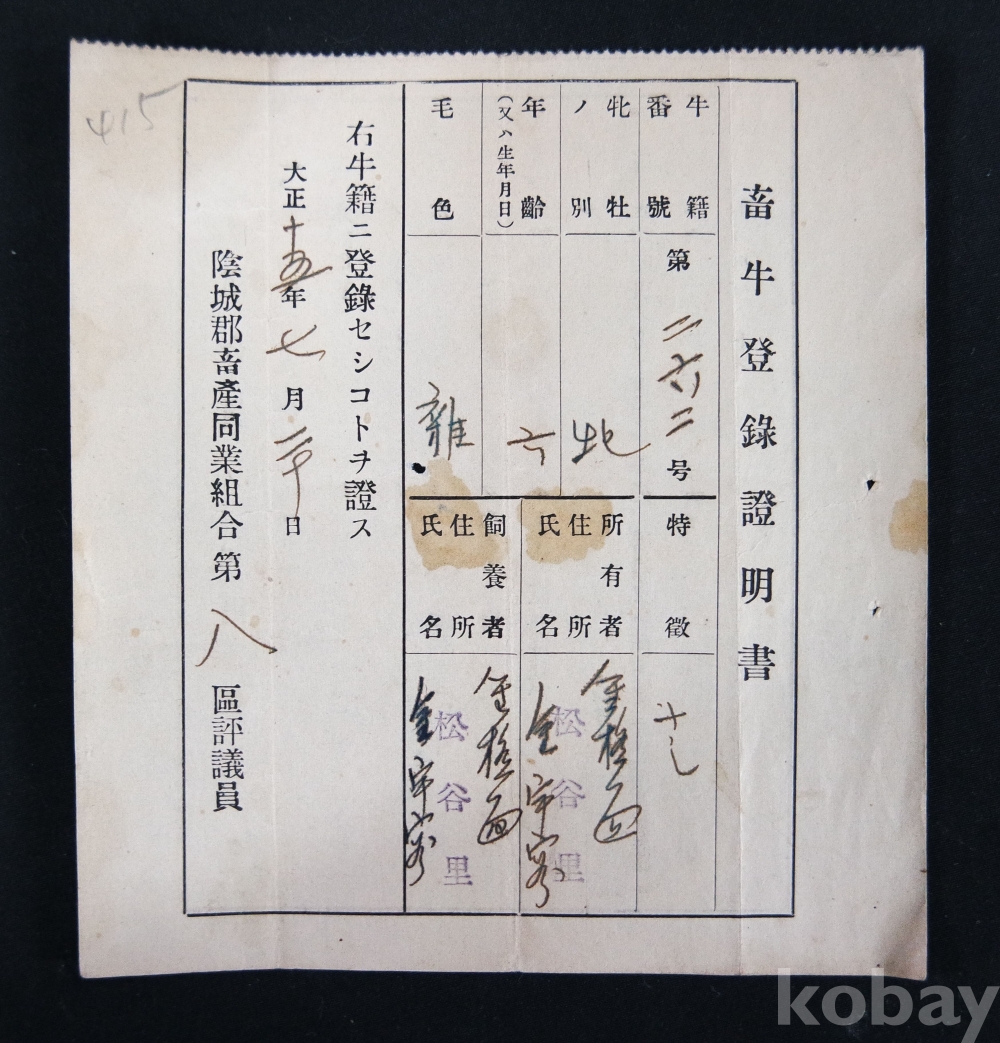 畜牛登錄證明書
牛籍番號
第二六二号
特徵
ナシ
牝牡ノ別
牝
年齡
(又ハ生年月日)
六
所有者
住所
氏名
金
松谷里
金
毛色
雜
飼養者
住所
氏名
金
松谷里
金
右牛籍ニ登錄セシコトヲ證ス
大正十五年七月二十日
陰城郡畜產同業組合第八區評議員
415
kobay